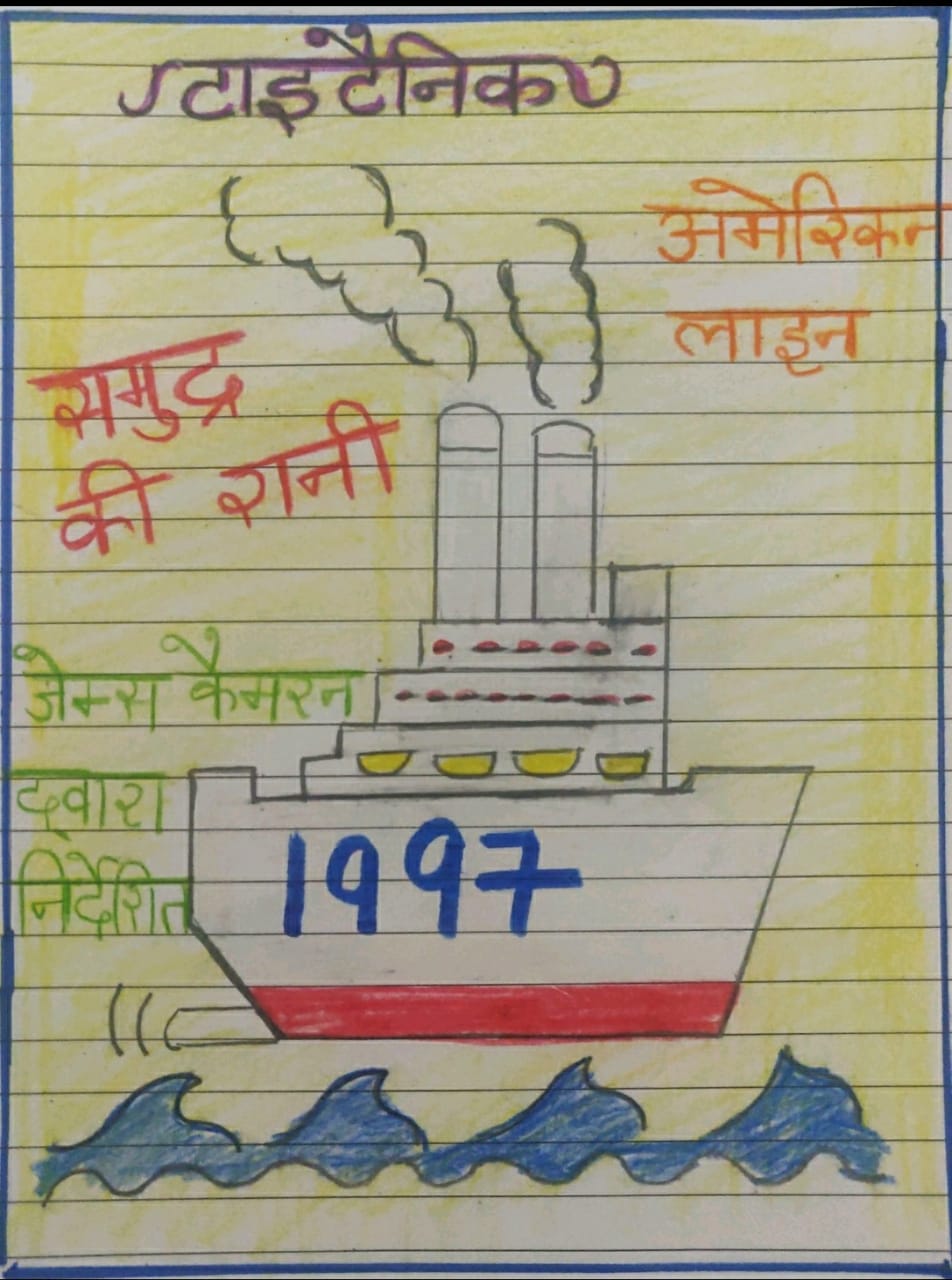 टाइटैनिक
अमेरिकन
लाइन
समुद्र
की रानी
जेम्स कैमरन
द्वारा
निर्देशित
1997